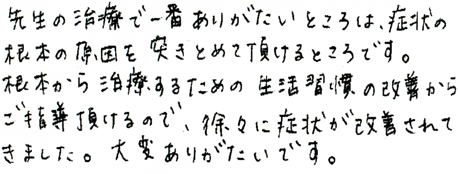 先生の治療で一番ありがたいところは、症状の
根本の原因を突きとめて頂けるところです。
根本から治療するための生活習慣の改善から
ご指導頂けるので、徐々に症状が改善されて
きました。大変ありがたいです。